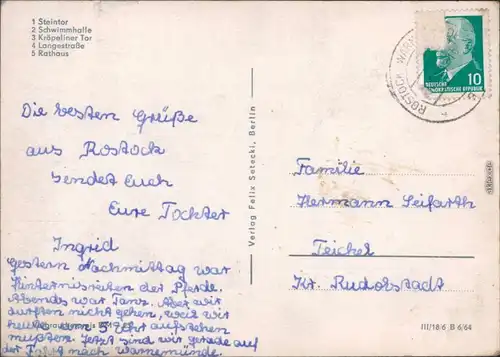 1 Steintor
2 Schwimmhalle
3 Kröpeliner Tor
4 Langestraße
5 Rathaus
Die besten Grüße
aus Rostock
sendet Euch
Eure Tochter
Ingrid
Gestern Nachmittag war
Hindernisreiten der Pferde.
Abends war Tanz. Aber wir
durften nicht gehen, weil wir
heute um 5 Uhr aufstehen
mußten. Jetzt sind wir gerade auf
der Fahrt nach Warnemünde.
Verlag Felix Setecki, Berlin
ROSTOCK
DEUTSCHE
DEMOKRATISCHE REPUBLIK
10
Familie
Hermann Seifarth
Teichel
Kr. Rudolstadt
III/18/6 B 6/64